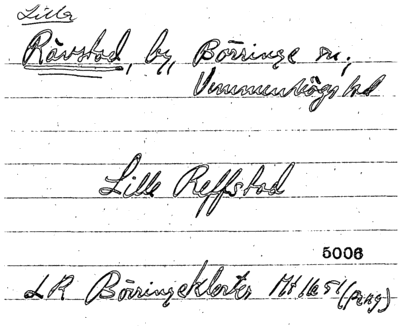 Lilla
Råvstad, by, Börringe sn;
Vemmenhögs hd
Lille Reffstad
5006
LR Börringekloster